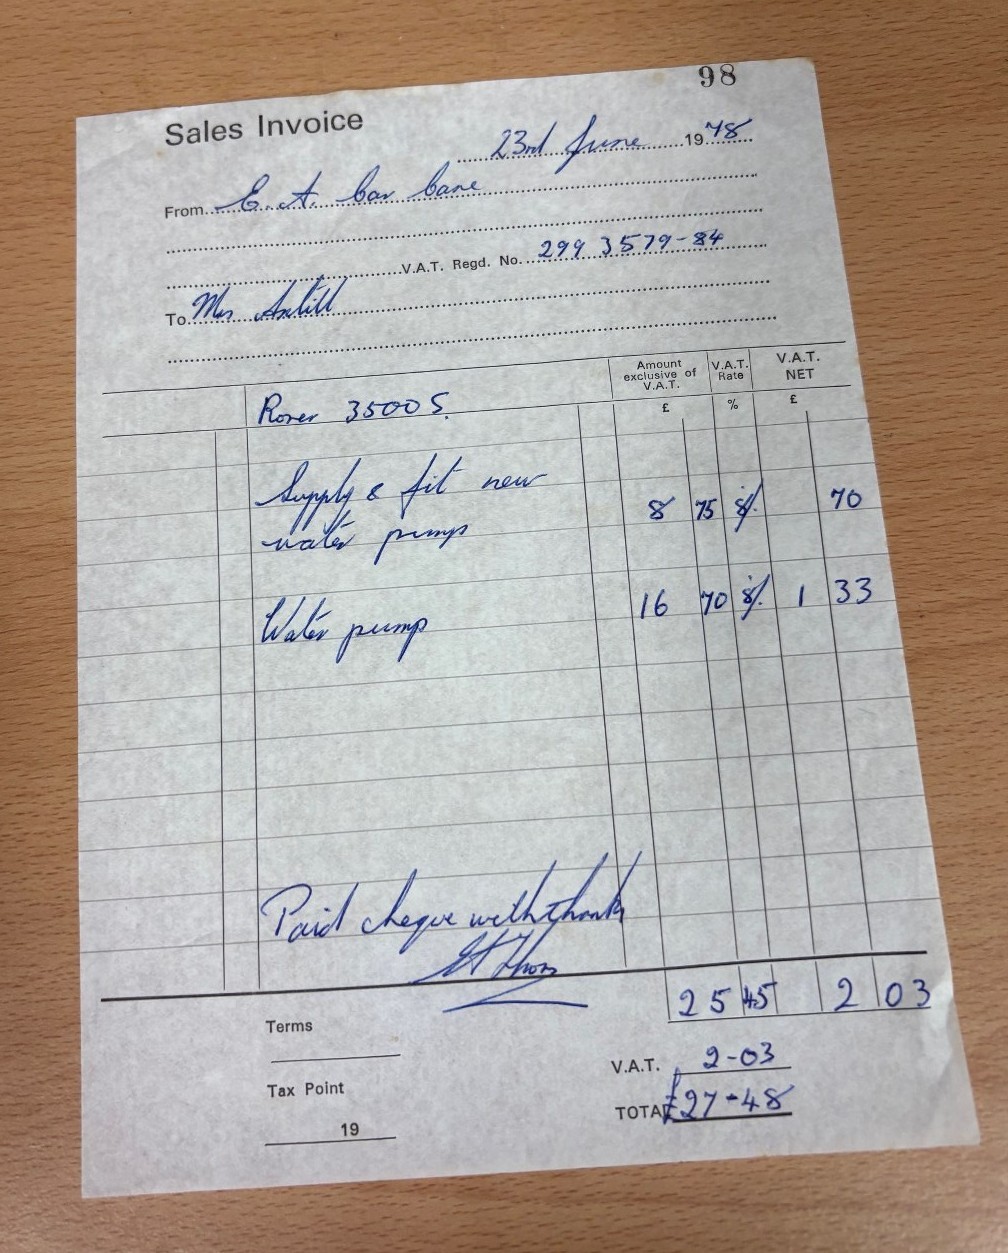 98
Sales Invoice
23rd June 1978
From E. A. Car Care
V.A.T. Regd. No. 299 3579-84
To Mrs
Amount exclusive of V.A.T. V.A.T. Rate V.A.T. NET
£ % £
Rover 3500 S.
Supply & fit new
water pump 8 75 8% 70
Water pump 16 70 8% 1 33
Paid cheque with thanks
25 45 2 03
Terms
V.A.T. 2-03
Tax Point
TOTAL £27-48
19